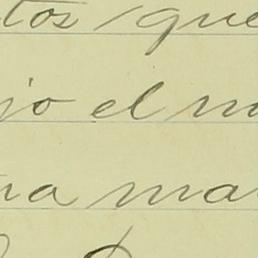 tos que
jo el m
na ma